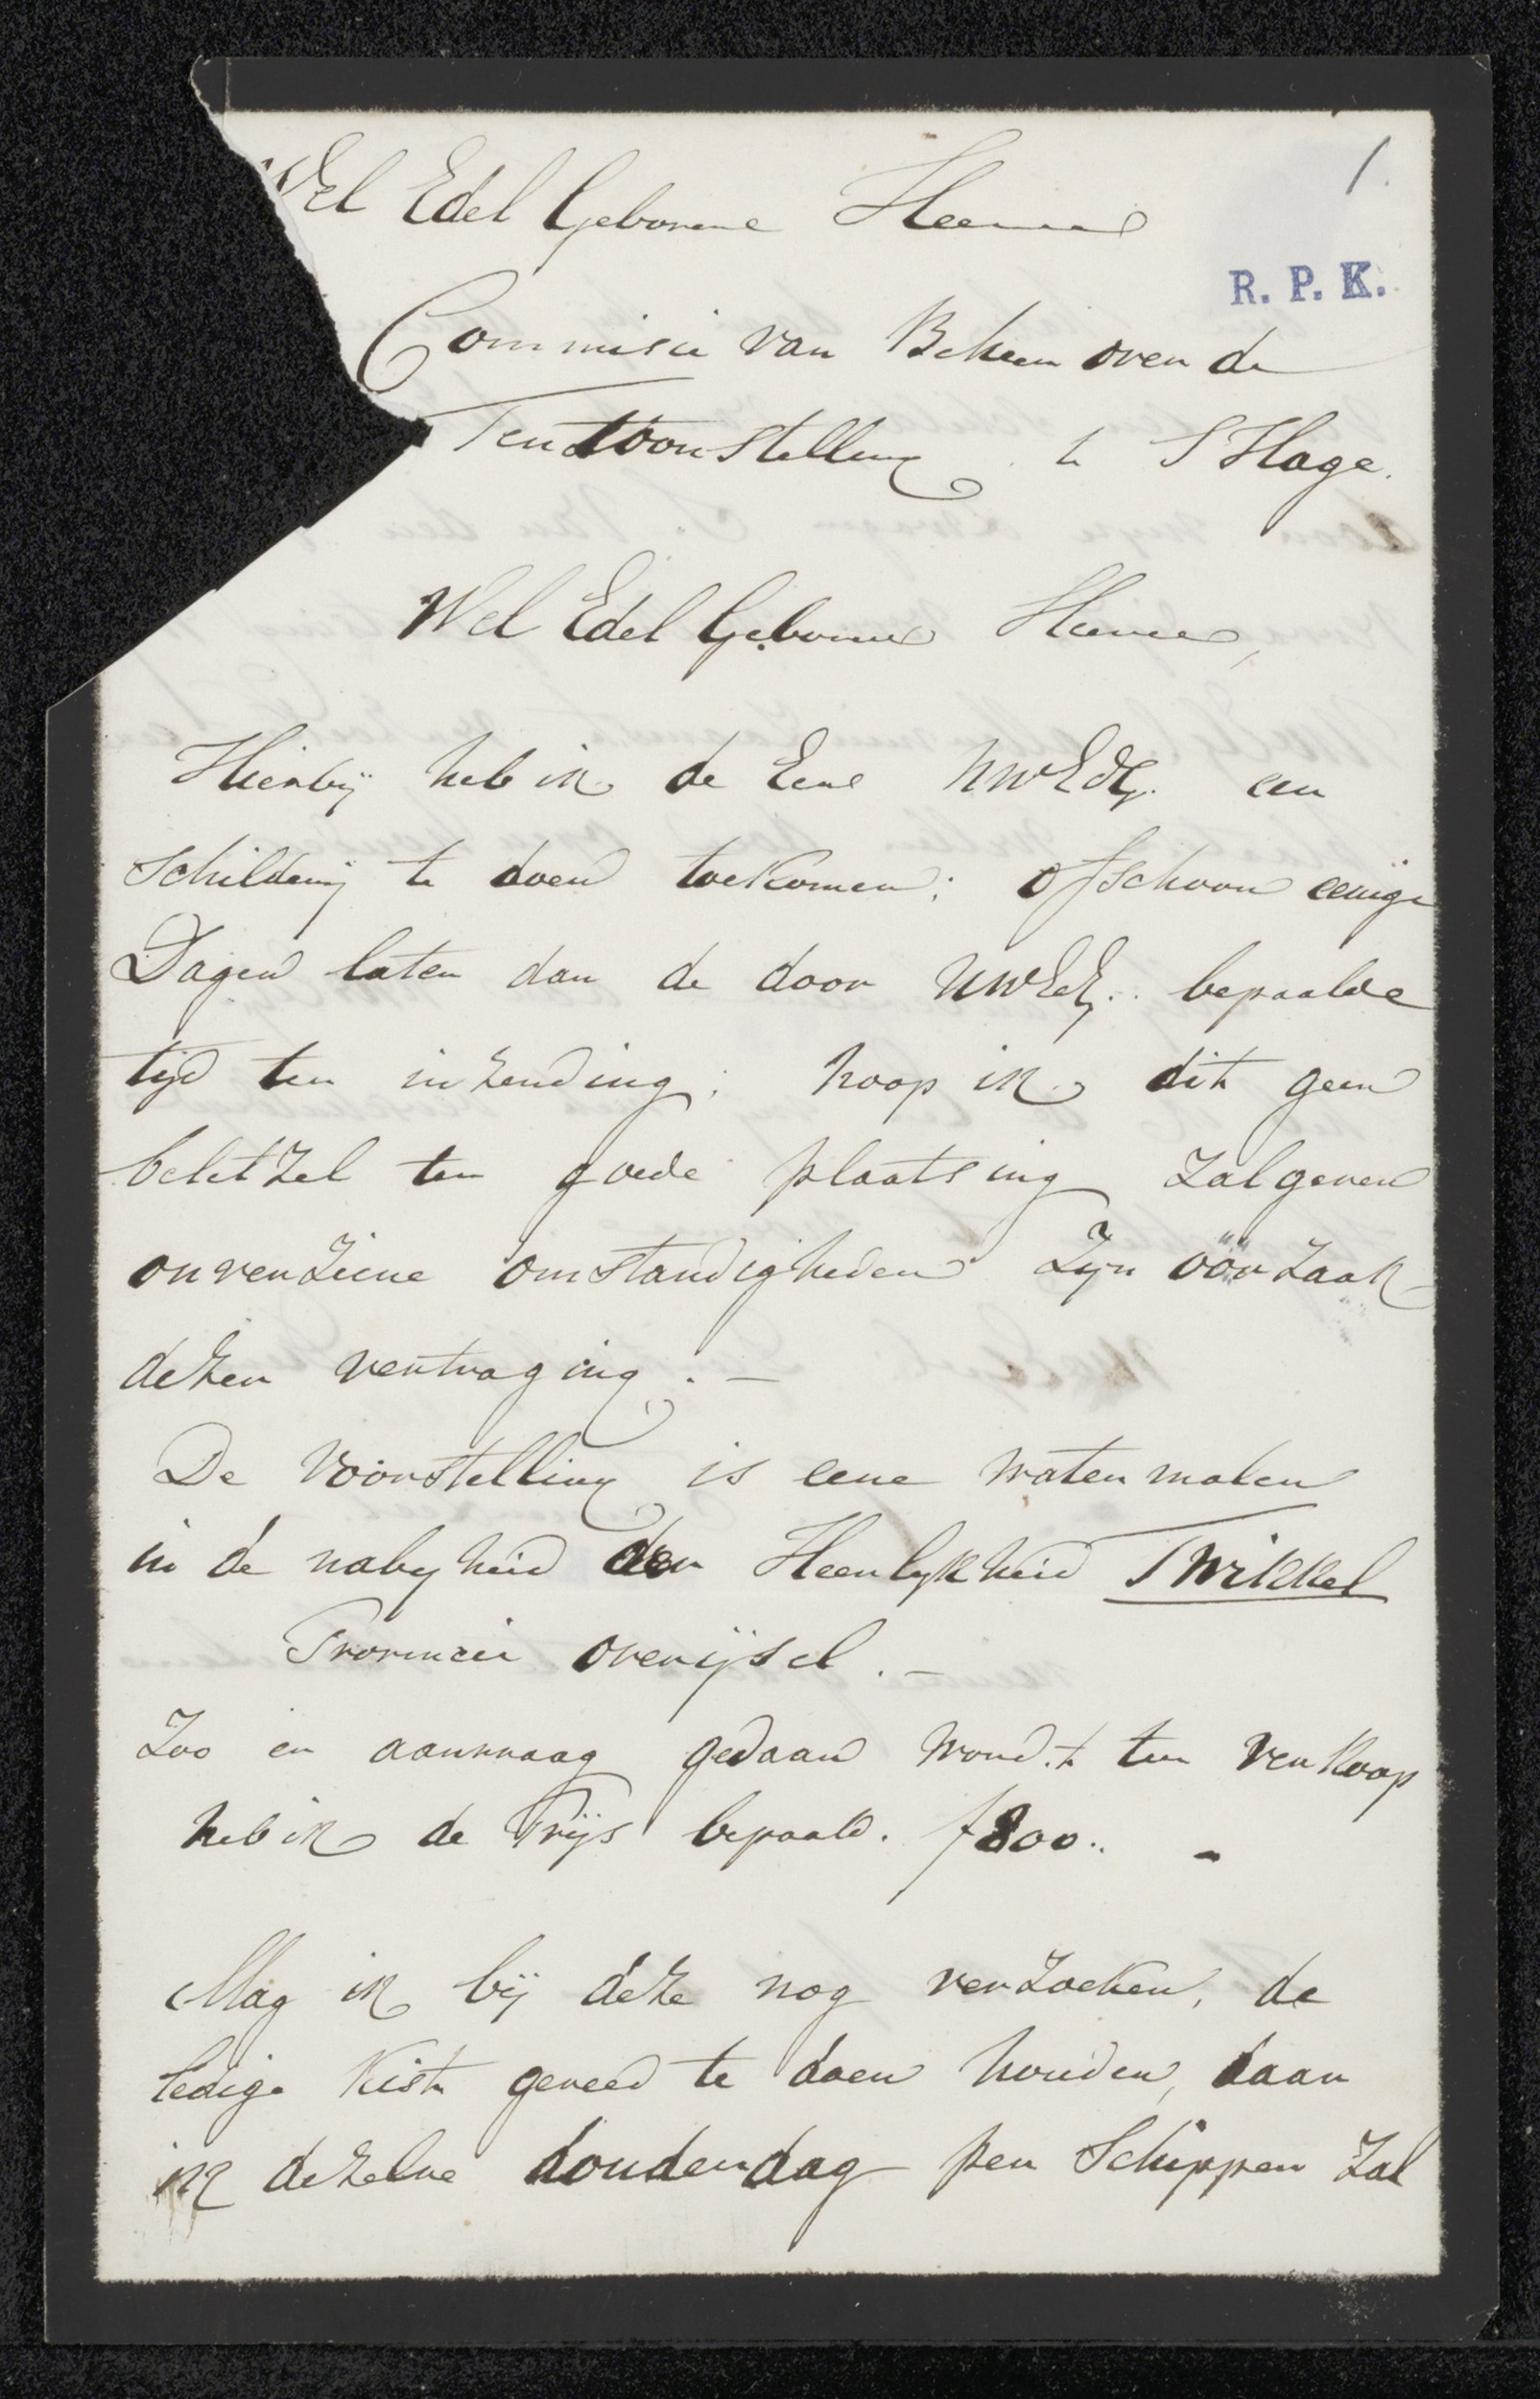 1.
Wel Edel Geborene Heeren
R. P. K.
Commisie van Beheer over de
Tentoonstelling te S Hage.
Wel Edel Geboren Heeren,
Hierbij heb ik de Eere UWEdG. een
Schilderij te doen toekomen; ofschoon eenige
Dagen later dan de door UWEdG. bepaalde
tijd ter inzending; hoop ik dit geen
beletzel ter goede plaatsing zal geven
onverziene omstandigheden zijn oorzaak
dezer vertraging. —
De Voorstelling is eene watermolen
in de nabyheid der Heerlykheid Twikkel
Provincie overijsel. —
Zoo er aanvraag gedaan word.t ter verkoop
heb ik de Prijs bepaald. f800.. -
Mag ik bij deze nog verzoeken, de
ledige Kist gereed te doen houden, daar
ik dezelve donderdag per Schipper zal